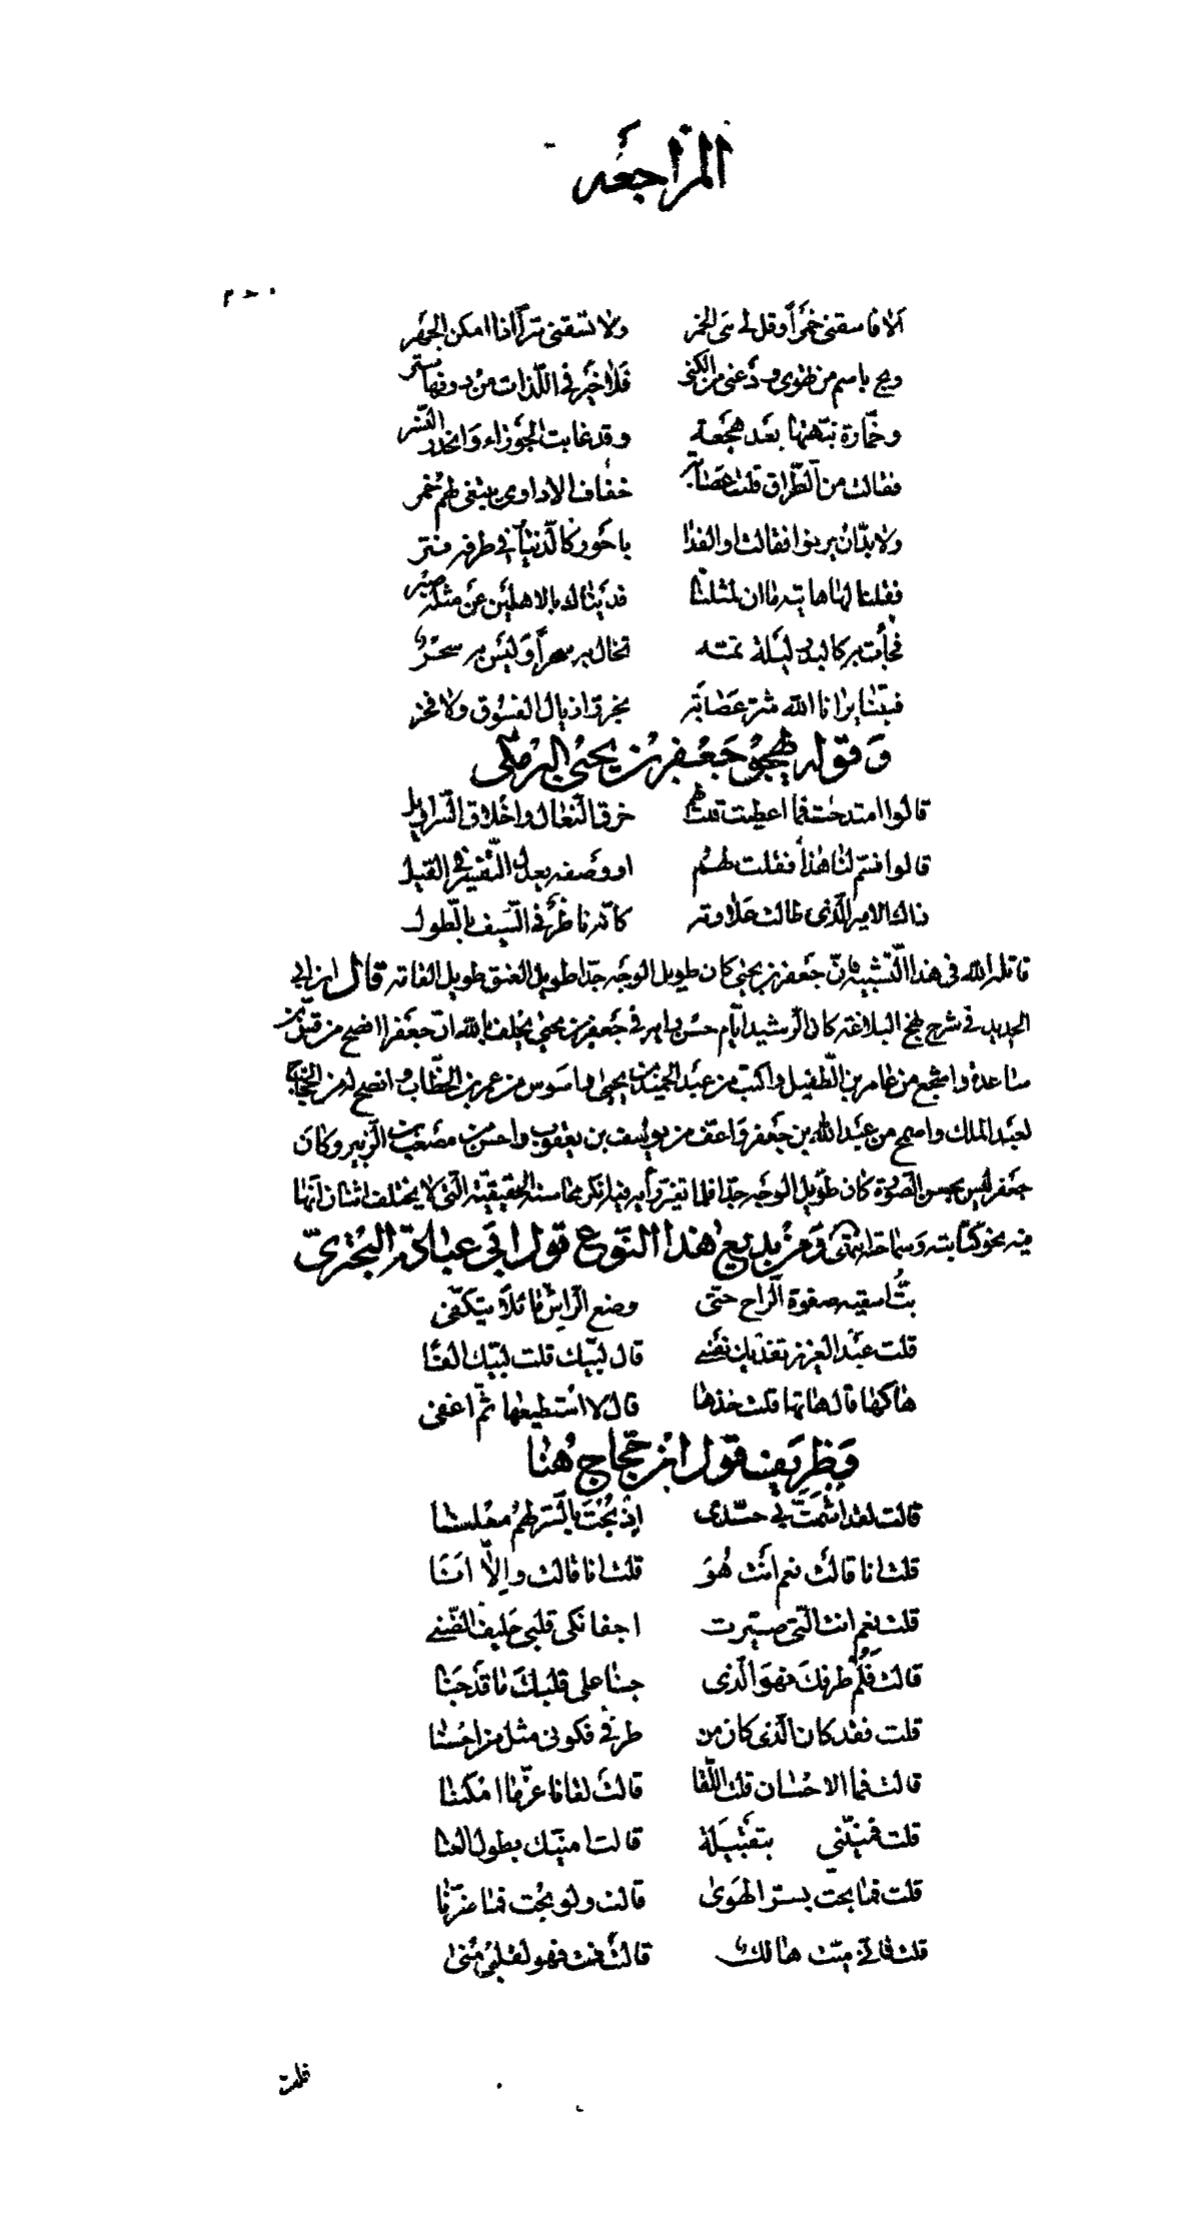 المراجعه
ألا فاسقني خمراً وقل لي هي الخمر ولا تسقني سراً اذا امكن الجهر
وبح باسم من تهوى ودعني من الكنى فلا خير في اللذات من دونها ستر
وخمّارة نبّهتها بعد هجعة وقد غابت الجوزاء وانحدر النسر
فقالت من الطّراق قلت عصابة خفاف الاداوى يبتغى لهم خمر
ولا بدّ ان يزنوا فقالت او الفدا باحور كالدّينار في طرفه فتر
فقلنا لها هاتيه ما ان لمثلنا فديناك بالاهلين عن مثله صبر
فجأت به كالبدر ليلة تمّه تخال به سحراً وليس به سحر
فبتنا يرانا الله شرّ عصابة نجرّر اذيال الفسوق ولا فخر
وقوله يهجو جعفر بن يحيى البرمكي
قالوا امتدحت فما اعطيت قلت لهم خرق النعال واخلاق السّرابيل
قالوا فسمّ لنا هذا فقلت لهم او وصفه يعدل التّفسير في القيل
ذاك الامير الذي طالت علاوته كأنّه ناظر في السّيف بالطول
قاتله الله في هذا التّشبيه فانّ جعفر بن يحيى كان طويل الوجه جدّا طويل العنق طويل القامة قال ابن ابي
الحديد في شرح نهج البلاغة كان الرّشيد ايّام حسن رايه في جعفر بن يحيى يحلف بالله انّ جعفرا افصح من قسّ بن
ساعدة واشجع من عامر بن الطّفيل واكتب من عبد الحميد بن يحيى واسوس من عمر بن الخطّاب وانصح له من الحجّاج
لعبد الملك واسمح من عبد الله بن جعفر واعف من يوسف بن يعقوب واحسن من مصعب بن الزّبير وكان
جعفر ليس بحسن الصّورة كان طويل الوجه جدّا فلما تغيّر رأيه فيه انكر محاسنه الحقيقيّة التي لا يختلف اثنان انّها
فيه نحو كتابته وسماحته انتهى ومن بديع هذا النّوع قول ابي عبادة البحتريّ
بتّ اسقيه صفوة الرّاح حتّى وضع الرّاس مائلاً يتكفّى
قلت عبد العزيز تفديك نفسي قال لبّيك قلت لبّيك الفا
هاكها قال هاتها قلت خذها قال لا استطيعها ثمّ اغفى
وظريف قول ابن حجاج هنا
قالت لقد اشمتّ بي حسّدي اذ بحت بالسّر لهم معلنا
قلت انا قالت نعم انت هو قلت انا قالت والاّ انا
قلت نعم انت الّتي صيّرت اجفانكي قلبي حليف الضّنى
قالت فلم طرفك فهو الّذي جنا على قلبك ما قد جنا
قلت فقد كان الّذي كان من طرفي فكوني مثل من احسنا
قالت فما الاحسان قلت اللّقا قالت لقانا عزّ ما امكنا
قلت فمنّيني بتقبيلة قالت امنّيك بطول العنا
قلت فما بحت بسرّ الهوى قالت ولو بحت فما ضرّنا
قلت فاني ميّت هالك قالت فمت فهو لقلبي منى
قلت